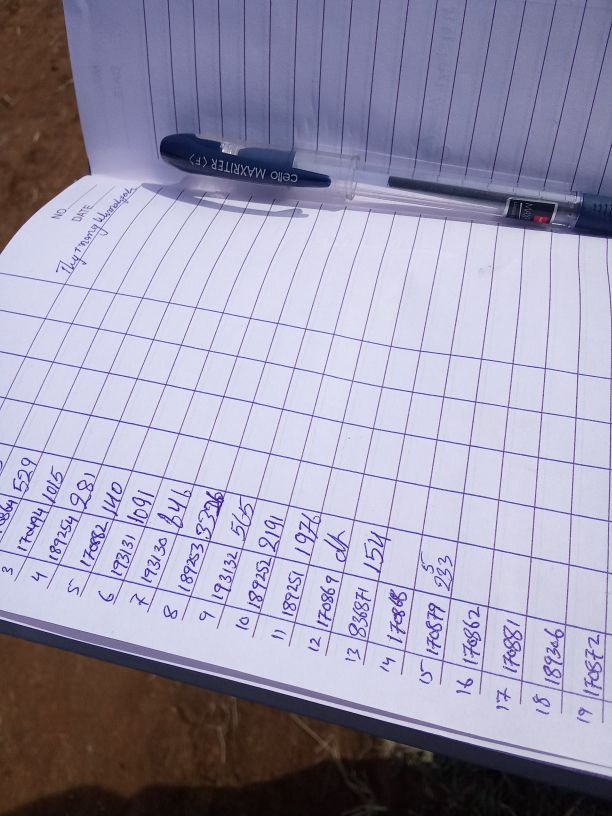 Cello MAXRITER (F)
NO.
DATE
529
3 170494 1015
4 189254 281
5 170882 140
6 193131 1091
7 193130 846
8 189253 3326
9 193132 565
10 189252 2191
11 189251 1976
12 170869 dh
13 836871 154
14 170868
15 170879 5 233
16 170862
17 170881
18 189306
19 170872